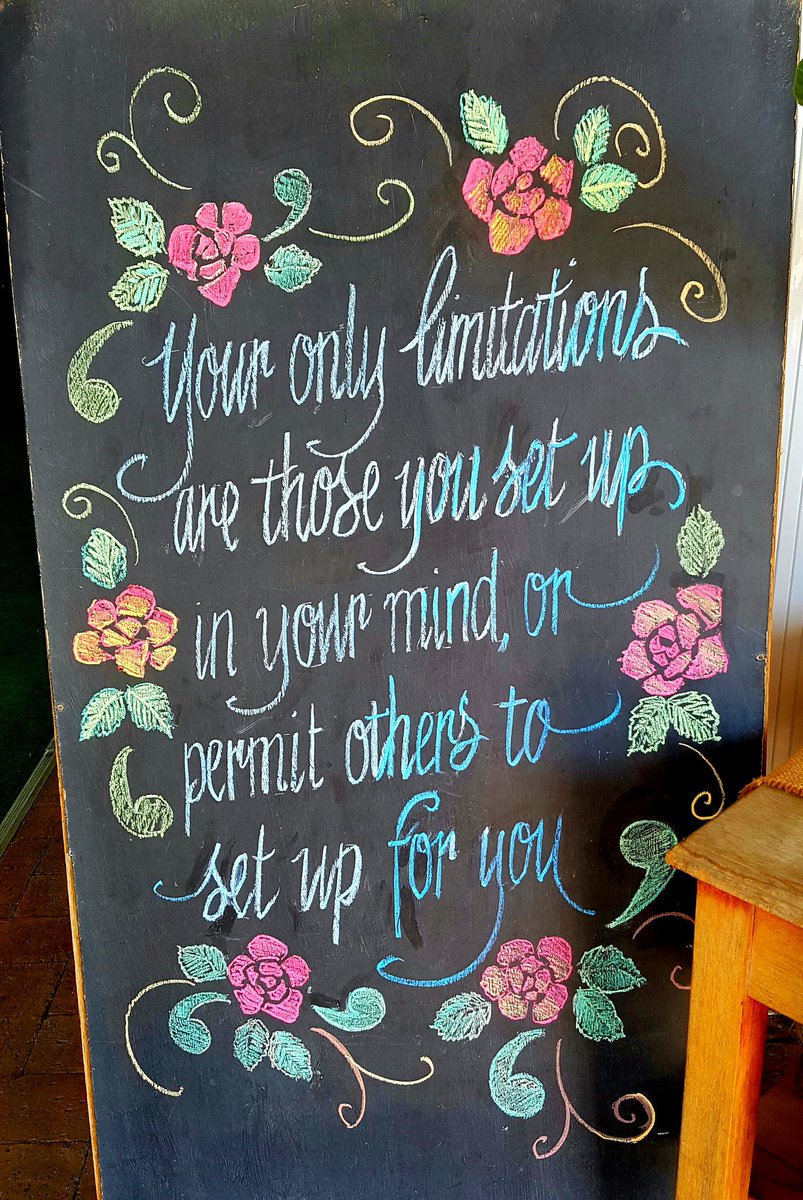 Your only limitations
are those you set up
in your mind, or
permit others to
set up for you